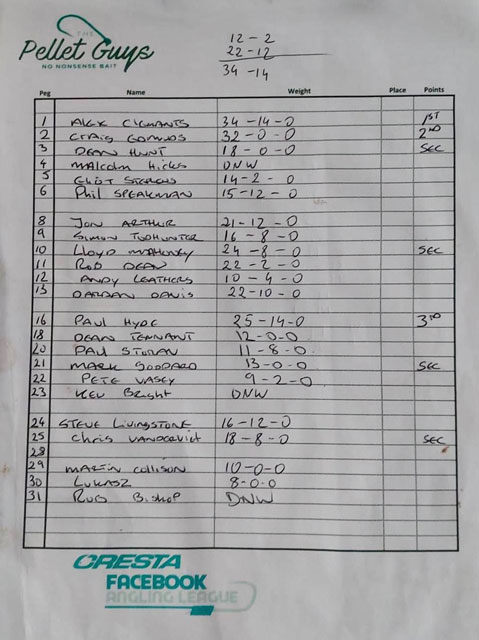 THE
Pellet Guys
NO NONSENSE BAIT
12 - 2
22 - 12
34 - 14
Peg Name Weight Place Points
1 ALEX CLEMANTS 34 - 14 - 0 1ST
2 CRAIG EDMUNDS 32 - 0 - 0 2ND
3 DEAN HUNT 18 - 0 - 0 SEC
4 MALCOLM Hicks DNW
5 14 - 2 - 0
6 Phil SPEAKMAN 15 - 12 - 0
8 JON ARTHUR 21 - 12 - 0
9 SIMON TODHUNTER 16 - 8 - 0
10 LLOYD MAHONEY 24 - 8 - 0 SEC
11 ROB DEAN 22 - 2 - 0
12 ANDY LEATHERS 10 - 4 - 0
13 DAVIS 22 - 10 - 0
16 PAUL HYDE 25 - 14 - 0 3RD
18 DEAN TENNANT 12 - 0 - 0
20 PAUL 11 - 8 - 0
21 MARK GODDARD 13 - 0 - 0 SEC
22 PETE VASEY 9 - 2 - 0
23 KEV Bright DNW
24 STEVE LIVINGSTONE 16 - 12 - 0
25 Chris 18 - 8 - 0 SEC
28
29 MARTIN COLLISON 10 - 0 - 0
30 LUKASZ 8 - 0 - 0
31 ROB BISHOP DNW
CRESTA
FACEBOOK
ANGLING LEAGUE